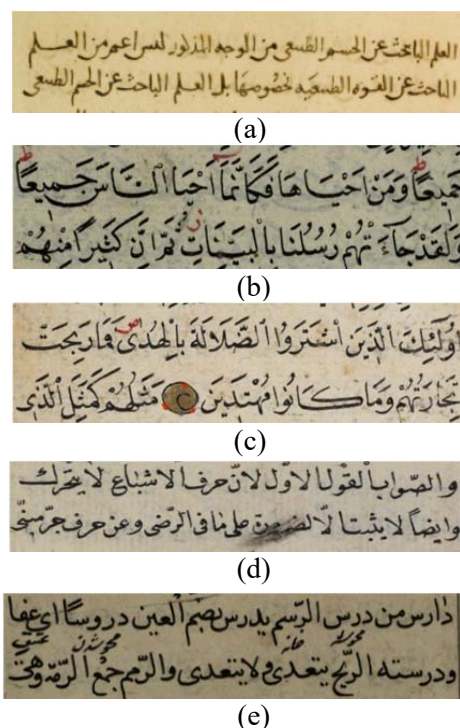 العلم الباحث عن الجسم الطبيعى من الوجه المذكور ليس اعم من العلم
الباحث عن القوه الطبيعيه بخصوصها بل العلم الباحث عن الجسم الطبيعى
(a)
جَمِيعًا وَمَنْ اَحْيَاهَا فَكَاَنَّمَا اَحْيَا النَّاسَ جَمِيعًا
وَلَقَدْ جَاءَتْهُمْ رُسُلُنَا بِالْبَيِّنَاتِ ثُمَّ اِنَّ كَثِيرًا مِنْهُمْ
(b)
اُولَئِكَ الَّذِينَ اشْتَرَوُا الضَّلَالَةَ بِالْهُدَى فَمَا رَبِحَتْ
تِجَارَتُهُمْ وَمَا كَانُوا مُهْتَدِينَ مَثَلُهُمْ كَمَثَلِ الَّذِى
(c)
والصّواب القول الاوّل لانّ حرف الاشباع لا يتحرّك
وايضاً لا يثبتا لّا لضرورة على ما فى الرّضى وعن حرف جرّ
(d)
دارس من درس الرّسم يدرس بضم العين دروساً اى عفا
ودرسته الرّيح يتعدى ولا يتعدى والرّمم جمع الرّمة وهى
(e)